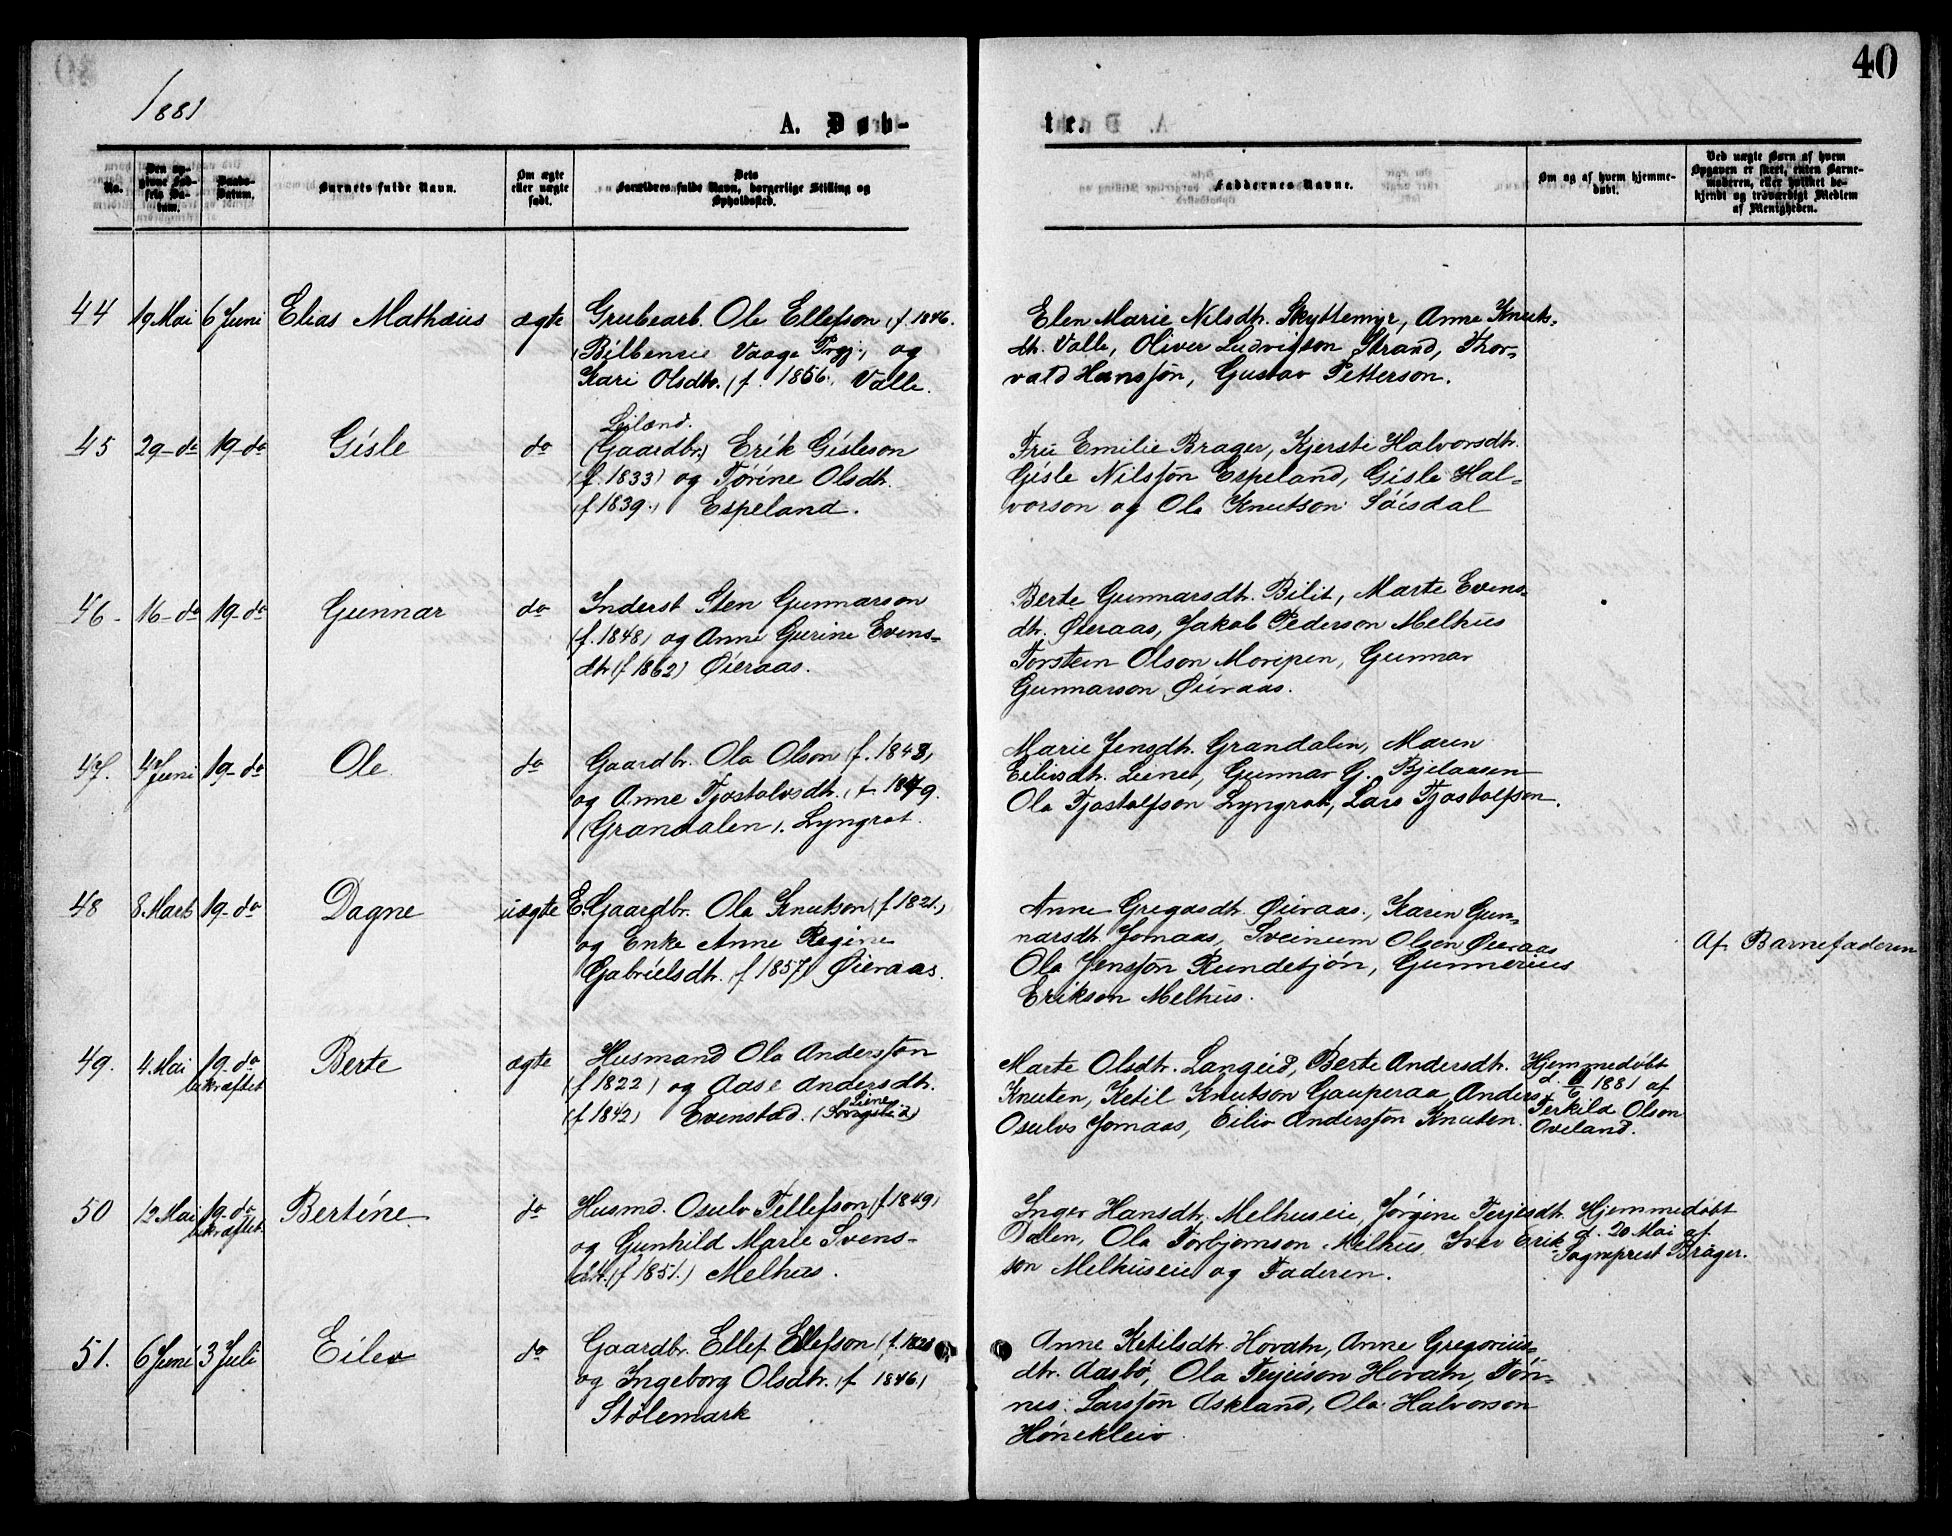 40
1881
A. Døb-
te.
No.
Den op-
givne Fød-
sels Da-
tum.
Daabs-
Datum.
Barnets fulde Navn.
Om ægte
eller uægte
født.
Dets
Forældres fulde Navn, borgerlige Stilling og
Opholdssted.
Faddernes Navne.
Om og af hvem hjemme-
døbt.
Ved uægte Børn af hvem
Opgaven er skeet, enten Barne-
moderen, eller hvilket be-
kjendt og troværdigt Medlem
af Menigheden.
44 19 Mai 6 Juni Elias Mathæus ægte Grubearb. Ole Ellefson (f. 1846.
Vaage Prgj.) og
Kari Olsdtr. (f. 1856. Valle.
Elen Marie Nilsdtr. Skyttemyr, Anne Knuts-
dtr. Valle, Oliver Ludvigson Strand, Thor-
vald Hansjøn, Gustav Petterson.
45 29-do 19-do Gisle do Leilænd.
(Gaardbr.) Erik Gisleson
(f. 1833) og Torine Olsdtr.
(f. 1839.) Espeland.
Fru Emilie Brager, Kjersti Halvorsdtr.
Gisle Nilsjøn Espeland, Gisle Hal-
vorson og Ola Knutson
46- 16-do 19-do Gunnar do Inderst Sten Gunnarson
(f. 1848) og Anne Gurine Evens-
dtr (f 1862) Øieraas.
Berte Gunnarsdtr. Bilit, Marte Evens-
dtr. Øieraas, Jakob Pederson Melhus
Torstein Olson Moripen, Gunnar
Gunnarson Øieraas.
47. 4 Juni 19-do Ole do Gaardbr. Ola Olson (f. 1843)
og Anne Tjostolvsdtr. (f. 1849.
(Grandalen). Lyngrot.
Marie Jensdtr. Grandalen, Maren
Eilivsdtr. Liene, Gunnar G. Bjelaasen
Ola Tjostolfson Lyngrot, Lars Tjostolfson.
48 8. Marts 19-do Dagne uægte E. Gaardbr. Ola Knutson (f 1821.)
og Enke Anne Regine
Gabrielsdtr. (f 1857) Øieraas.
Anne Gregasdtr. Øieraas, Karen Gun-
narsdtr. Jomaas, Sveinum Olson Øieraas
Ola Jensjøn Rundesjøn, Gunnerius
Erikson Melhus.
Af Barnefaderen
49. 4. Mai 19-do
bekræftet Berte ægte Husmand Ola Andersjøn
(f 1822) og Aase Andersdtr.
(f 1842) Evenstad.
Marte Olsdtr. Langeid, Berte Andersdtr.
Knuten, Ketil Knutson Gauperaa, Anders
Osulvs Jomaas, Eiliv Andersjøn Knuten.
Hjemmedøbt
1881 af
Terkild Olson
Oveland.
50 12 Mai 19-do
bekræftet Bertine do Husmd. Osulv Tellefson (f 1849)
og Gunhild Marie Svens-
dtr. (f 1851.) Melhus.
Inger Hansdtr. Melhuseie, Jørgine Terjesdtr.
Dalen, Ola Torbjornson Melhus, Iver Erik-
son Melhuseie og Faderen.
Hjemmedøbt
d. 20 Mai af
Sogneprest Brager.
51. 6 Juni 3 Juli Eilev do Gaardbr. Ellef Ellefson
og Ingeborg Olsdtr. (f 1846)
Stølemark
Anne Ketilsdtr. Horatn, Anne Gregorius-
dtr. Aasbø, Ola Terjeison Horatn, Tøn-
nes Larsjøn Askland, Ola Halvorson
Hønekleiv